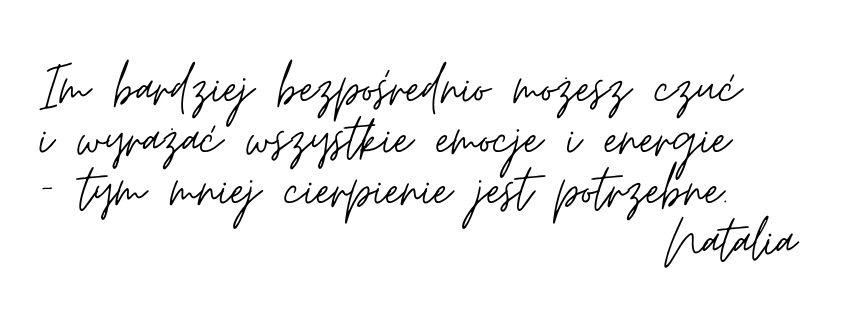 Im bardziej bezpośrednio możesz czuć
i wyrażać wszystkie emocje i energie
- tym mniej cierpienie jest potrzebne.
Natalia